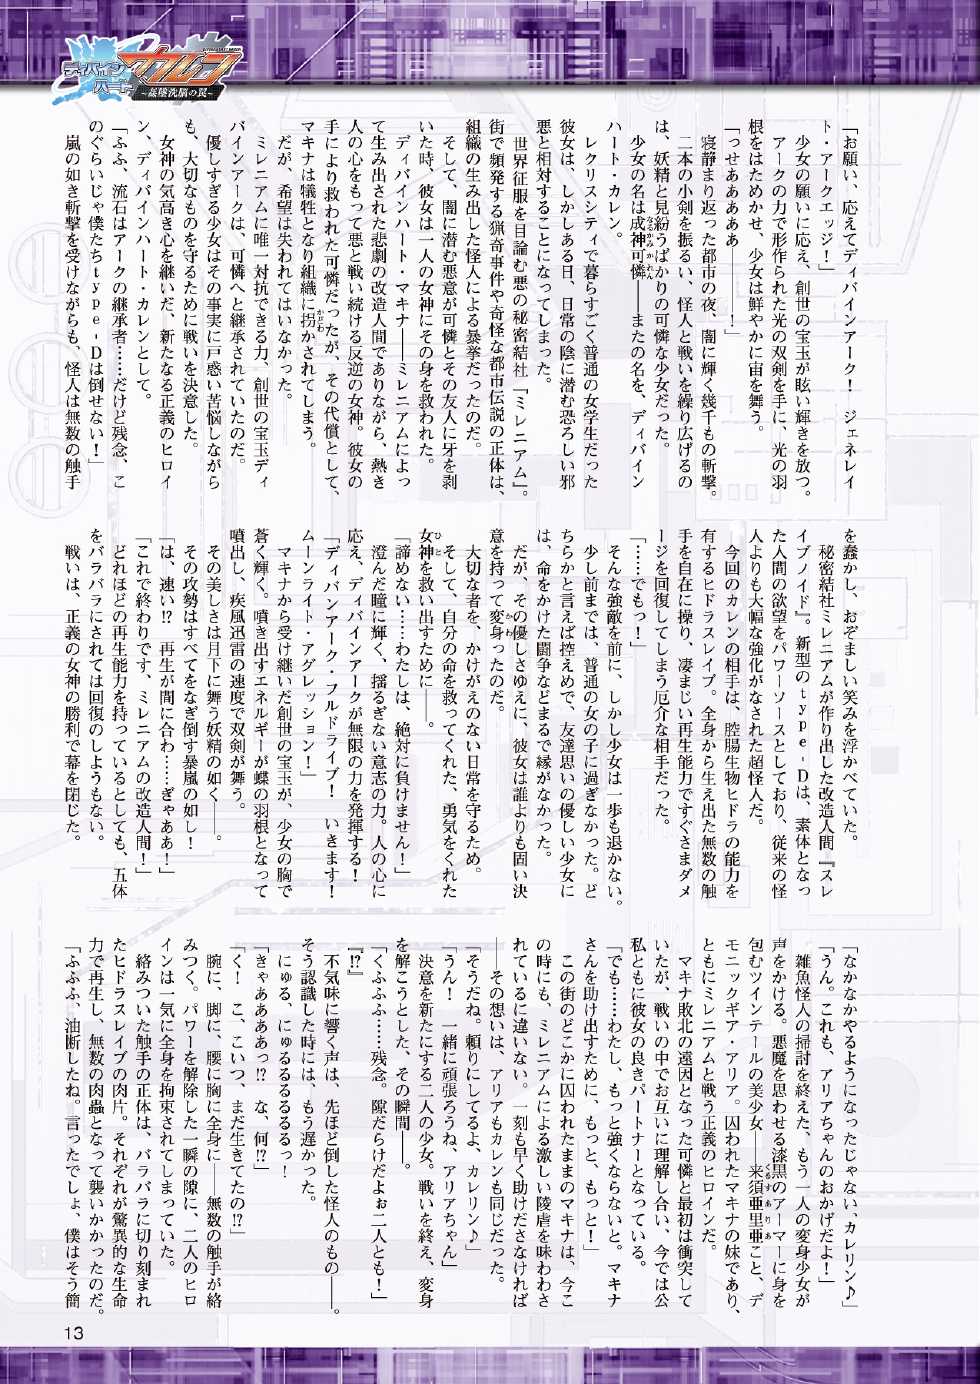 ディバインハート カレン
~姦墜洗脳の罠~
「お願い、応えてディバインアーク! ジェネレイ
ト・アークエッジ!」
少女の願いに応え、創世の宝玉が眩い輝きを放つ。
アークの力で形作られた光の双剣を手に、光の羽
根をはためかせ、少女は鮮やかに宙を舞う。
「っせああああぁ――!」
寝静まり返った都市の夜、闇に輝く幾千もの斬撃。
二本の小剣を振るい、怪人と戦いを繰り広げるの
は、妖精と見紛うばかりの可憐な少女だった。
少女の名は成神可憐――またの名を、ディバイン
なるかみかれん
ハート・カレン。
レクリスシティで暮らすごく普通の女学生だった
彼女は、しかしある日、日常の陰に潜む恐ろしい邪
悪と相対することになってしまった。
世界征服を目論む悪の秘密結社『ミレニアム』。
街で頻発する猟奇事件や奇怪な都市伝説の正体は、
組織の生み出した怪人による暴挙だったのだ。
そして、闇に潜む悪意が可憐とその友人に牙を剥
いた時、彼女は一人の女神にその身を救われた。
ディバインハート・マキナ――ミレニアムによっ
て生み出された悲劇の改造人間でありながら、熱き
人の心をもって悪と戦い続ける反逆の女神。彼女の
手により救われた可憐だったが、その代償として、
マキナは犠牲となり組織に拐かされてしまう。
かどわ
だが、希望は失われてはいなかった。
ミレニアムに唯一対抗できる力、創世の宝玉ディ
バインアークは、可憐へと継承されていたのだ。
優しすぎる少女はその事実に戸惑い苦悩しながら
も、大切なものを守るために戦いを決意した。
女神の気高き心を継いだ、新たなる正義のヒロイ
ン、ディバインハート・カレンとして。
「ふふ、流石はアークの継承者……だけど残念、こ
のぐらいじゃ僕たちtype-Dは倒せない!」
嵐の如き斬撃を受けながらも、怪人は無数の触手
を蠢かし、おぞましい笑みを浮かべていた。
秘密結社ミレニアムが作り出した改造人間『スレ
イブノイド』。新型のtype-Dは、素体となっ
た人間の欲望をパワーソースとしており、従来の怪
人よりも大幅な強化がなされた超怪人だ。
今回のカレンの相手は、腔腸生物ヒドラの能力を
有するヒドラスレイブ。全身から生え出た無数の触
手を自在に操り、凄まじい再生能力ですぐさまダメ
ージを回復してしまう厄介な相手だった。
「……でもっ!」
そんな強敵を前に、しかし少女は一歩も退かない。
少し前までは、普通の女の子に過ぎなかった。ど
ちらかと言えば控えめで、友達思いの優しい少女に
は、命をかけた闘争などまるで縁がなかった。
だが、その優しさゆえに、彼女は誰よりも固い決
意を持って変身ったのだ。
かわ
大切な者を、かけがえのない日常を守るため。
そして、自分の命を救ってくれた、勇気をくれた
女神を救い出すために――。
ひと
「諦めない……わたしは、絶対に負けません!」
澄んだ瞳に輝く、揺るぎない意志の力。人の心に
応え、ディバインアークが無限の力を発揮する!
「ディバンアーク・フルドライブ! いきます!
ムーンライト・アグレッション!」
マキナから受け継いだ創世の宝玉が、少女の胸で
蒼く輝く。噴き出すエネルギーが蝶の羽根となって
噴出し、疾風迅雷の速度で双剣が舞う。
その美しさは月下に舞う妖精の如く――。
その攻勢はすべてをなぎ倒す暴嵐の如し!
「は、速い!? 再生が間に合わ……ぎゃああ!」
「これで終わりです、ミレニアムの改造人間!」
どれほどの再生能力を持っているとしても、五体
をバラバラにされては回復のしようもない。
戦いは、正義の女神の勝利で幕を閉じた。
「なかなかやるようになったじゃない、カレリン♪」
「うん。これも、アリアちゃんのおかげだよ!」
雑魚怪人の掃討を終えた、もう一人の変身少女が
声をかける。悪魔を思わせる漆黒のアーマーに身を
包むツインテールの美少女――来須亜里亜こと、デ
くるすありあ
モニックギア・アリア。囚われたマキナの妹であり、
ともにミレニアムと戦う正義のヒロインだ。
マキナ敗北の遠因となった可憐と最初は衝突して
いたが、戦いの中でお互いに理解し合い、今では公
私ともに彼女の良きパートナーとなっている。
「でも……わたし、もっと強くならないと。マキナ
さんを助け出すために、もっと、もっと!」
この街のどこかに囚われたままのマキナは、今こ
の時にも、ミレニアムによる激しい陵虐を味わわさ
れているに違いない。一刻も早く助けださなければ
――その想いは、アリアもカレンも同じだった。
「そうだね。頼りにしてるよ、カレリン♪」
「うん! 一緒に頑張ろうね、アリアちゃん」
決意を新たにする二人の少女。戦いを終え、変身
を解こうとした、その瞬間――。
「くふふふ……残念。隙だらけだよぉ二人とも!」
『!?』
不気味に響く声は、先ほど倒した怪人のもの――。
そう認識した時には、もう遅かった。
にゅる、にゅるるるるるるっ!
「きゃああああっ!? な、何!?」
「く! こ、こいつ、まだ生きてたの!?
腕に、脚に、腰に胸に全身に――無数の触手が絡
みつく。パワーを解除した一瞬の隙に、二人のヒロ
インは一気に全身を拘束されてしまっていた。
絡みついた触手の正体は、バラバラに切り刻まれ
たヒドラスレイブの肉片。それぞれが驚異的な生命
力で再生し、無数の肉蟲となって襲いかかったのだ。
「ふふふ、油断したね。言ったでしょ、僕はそう簡
13